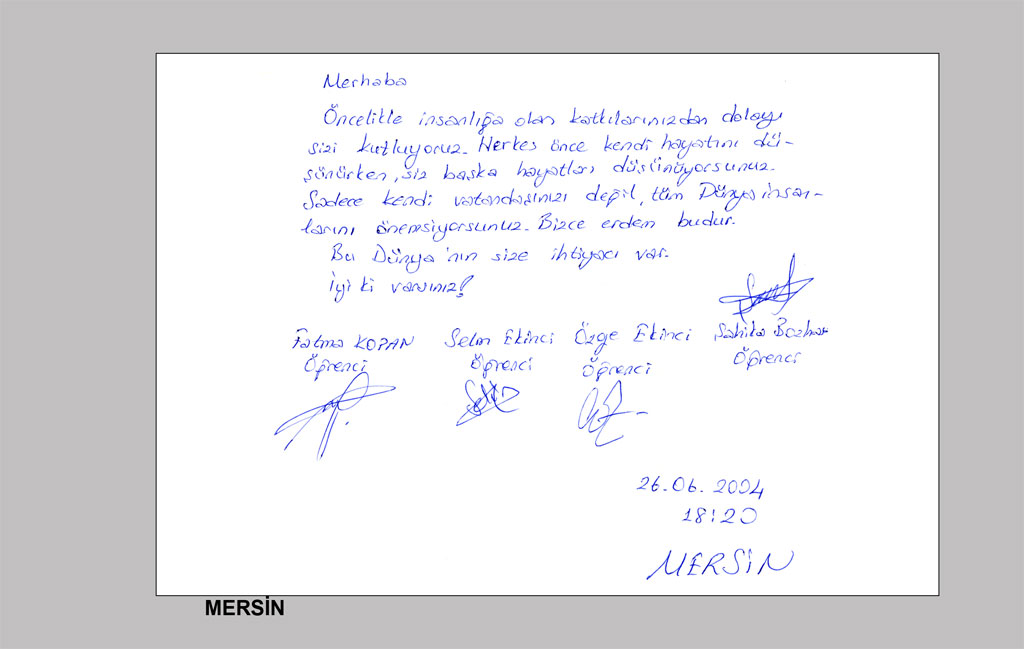 Merhaba
Öncelikle insanlığa olan katkılarınızdan dolayı
sizi kutluyoruz. Herkes önce kendi hayatını dü-
şünürken, siz başka hayatları düşünüyorsunuz.
Sadece kendi vatandaşınızı değil, tüm Dünya insan-
larını önemsiyorsunuz. Bizce erdem budur.
Bu Dünya'nın size ihtiyacı var.
İyi ki varsınız!
Fatma KOPAN Selin Ekinci Özge Ekinci
Öğrenci Öğrenci Öğrenci Öğrenci
26.06.2004
18:20
MERSİN
MERSİN